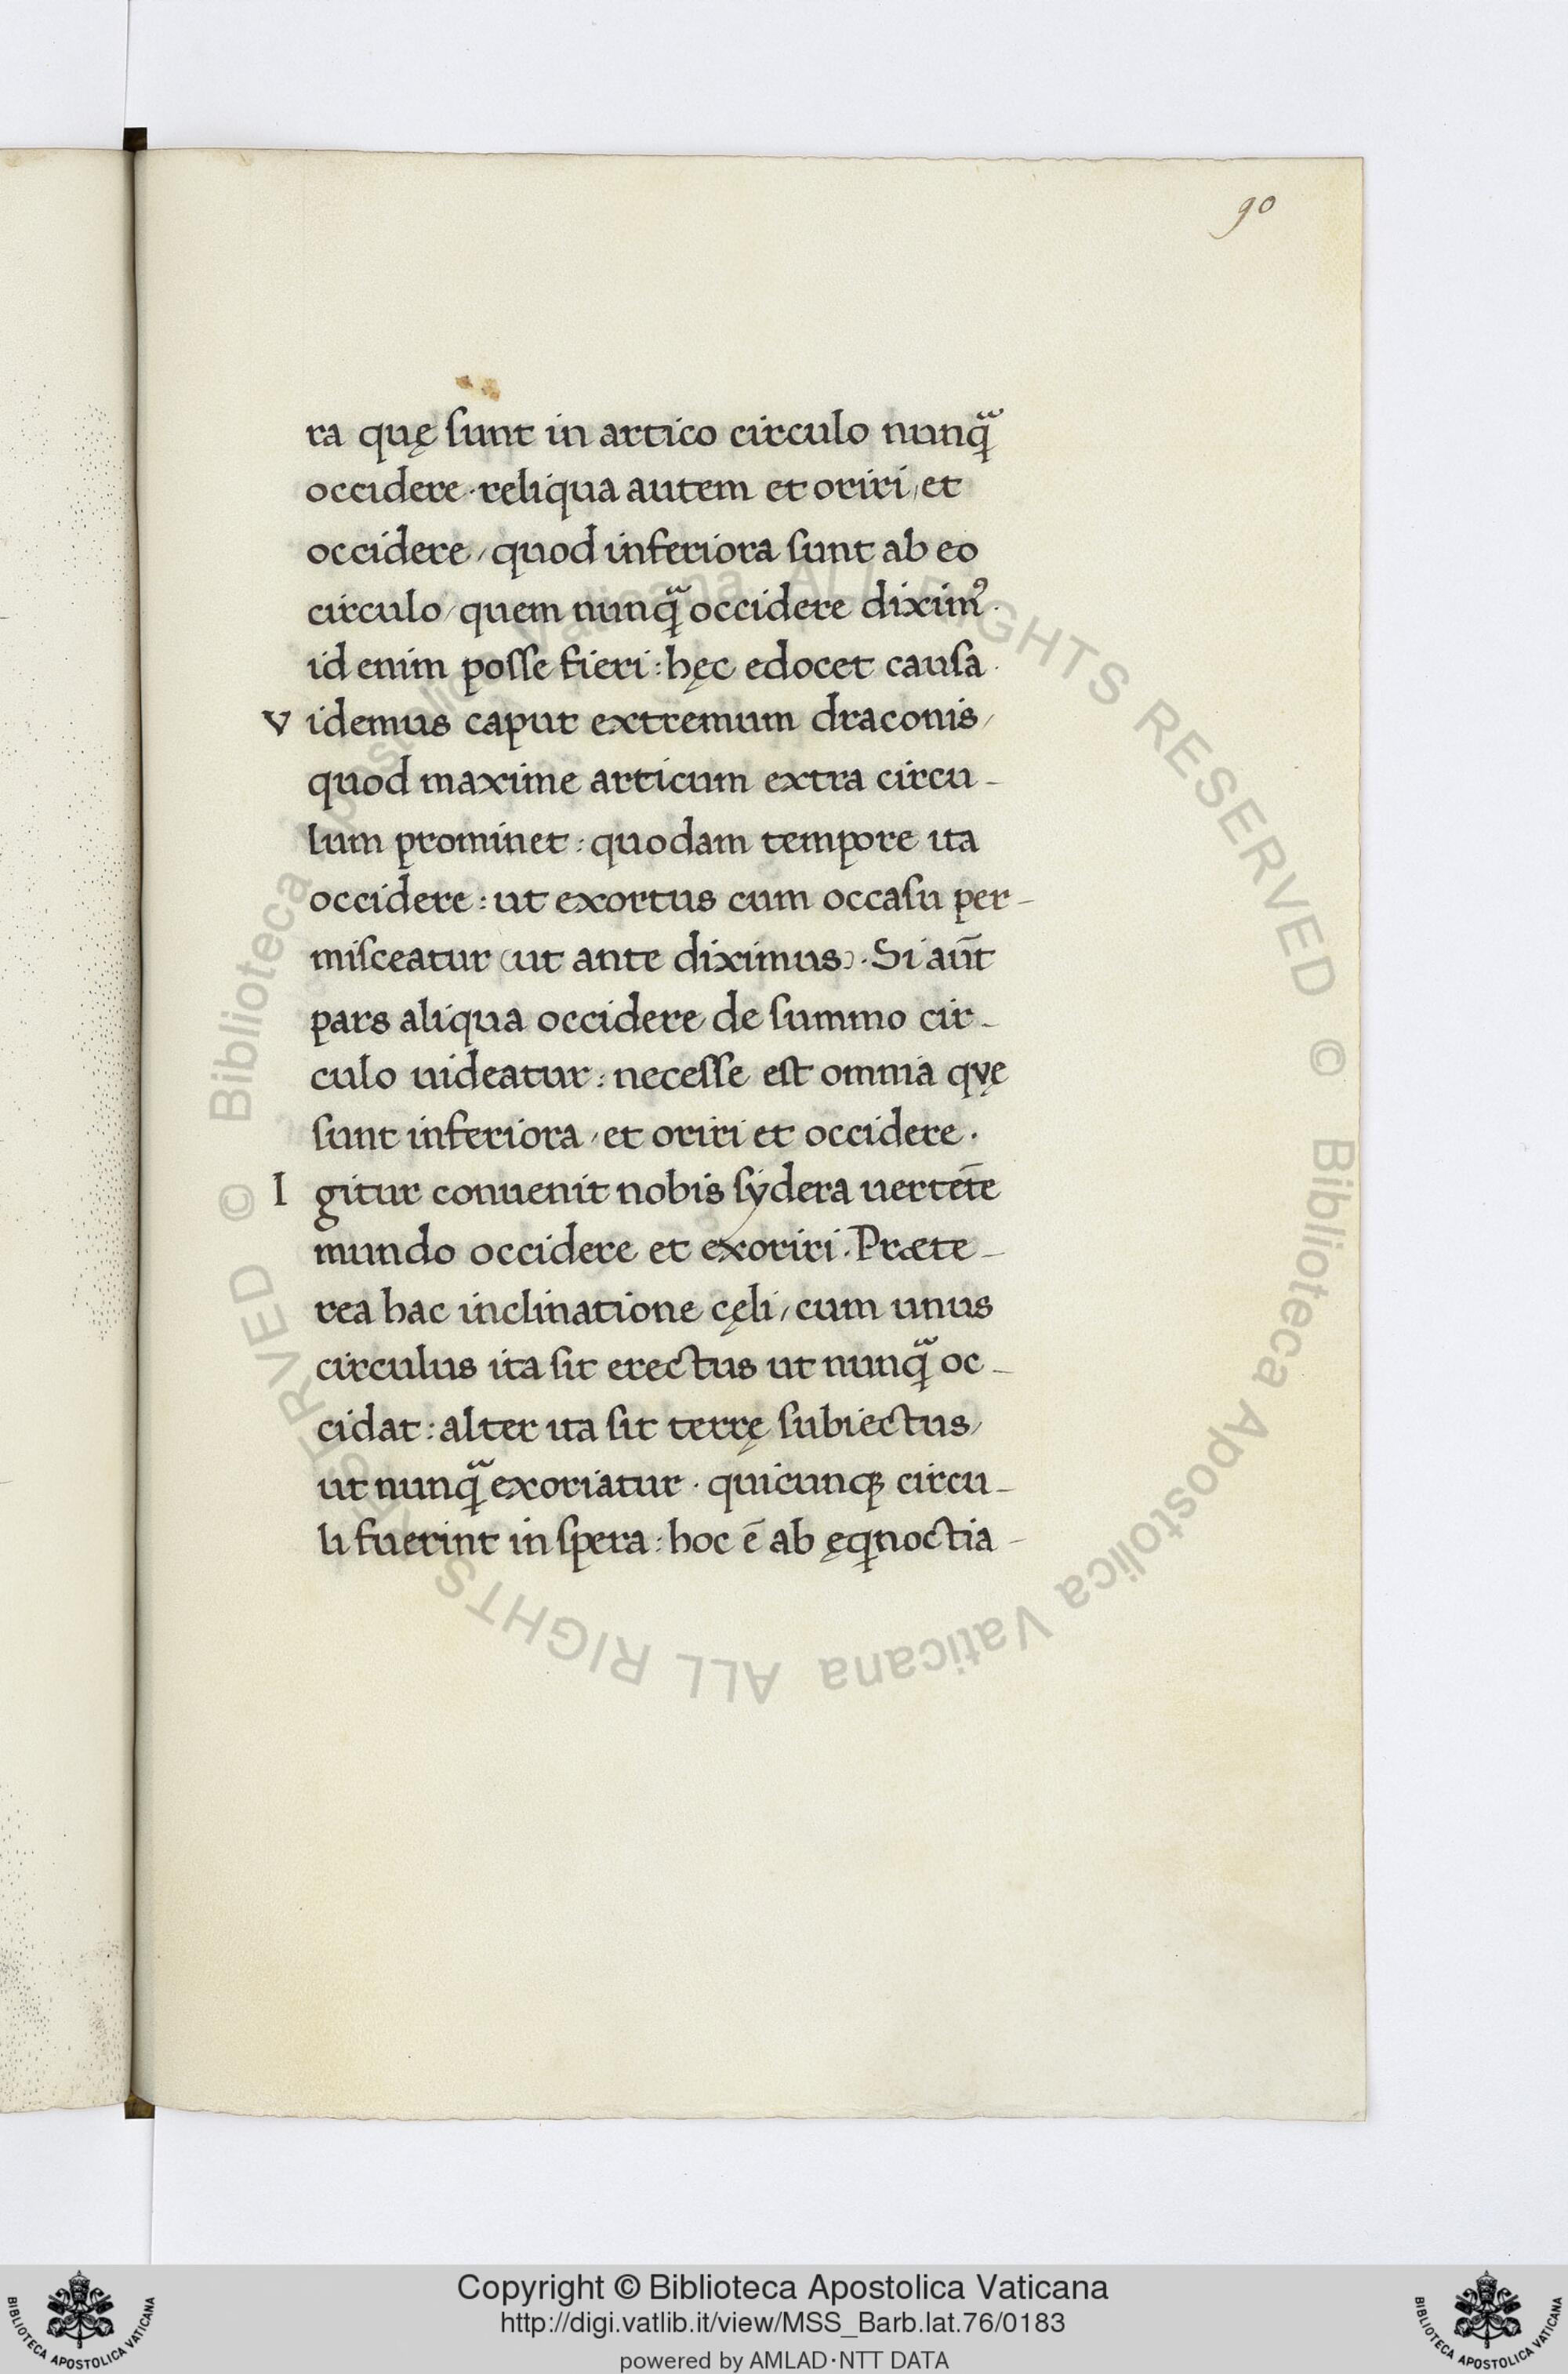 90
ra quę sunt in artico circulo nunq̃
occidere · reliqua autem et oriri, et
occidere, quod inferiora sunt ab eo
circulo, quem nunq̃ occidere diximꝰ.
id enim posse fieri: hęc edocet causa.
v idemus caput extremum draconis,
quod maxime articum extra circu-
lum prominet: quodam tempore ita
occidere: ut exortus cum occasu per-
misceatur (ut ante diximus). Si aut̄
pars aliqua occidere de summo cir-
culo uideatur: necesse est omnia qvę
sunt inferiora, et oriri et occidere.
I gitur conuenit nobis sydera uertēte
mundo occidere et exoriri. Præte-
rea hac inclinatione cęli, cum unus
circulus ita sit erectus ut nunq̃ oc-
cidat: alter ita sit terrę subiectus,
ut nunq̃ exoriatur · quicunqꝫ circu-
li fuerint in spera: hoc ē ab ęqnoctia-
© Biblioteca Apostolica Vaticana ALL RIGHTS RESERVED © Biblioteca Apostolica Vaticana ALL RIGHTS RESERVED
Copyright © Biblioteca Apostolica Vaticana
http://digi.vatlib.it/view/MSS_Barb.lat.76/0183
powered by AMLAD·NTT DATA
BIBLIOTECA APOSTOLICA VATICANA
BIBLIOTECA APOSTOLICA VATICANA